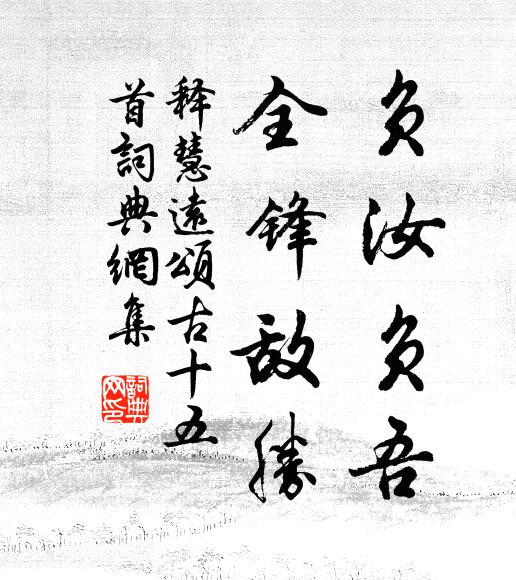 负汝负吾
全锋敌胜
释慧远颂古十五
首词典网集
词典
网印